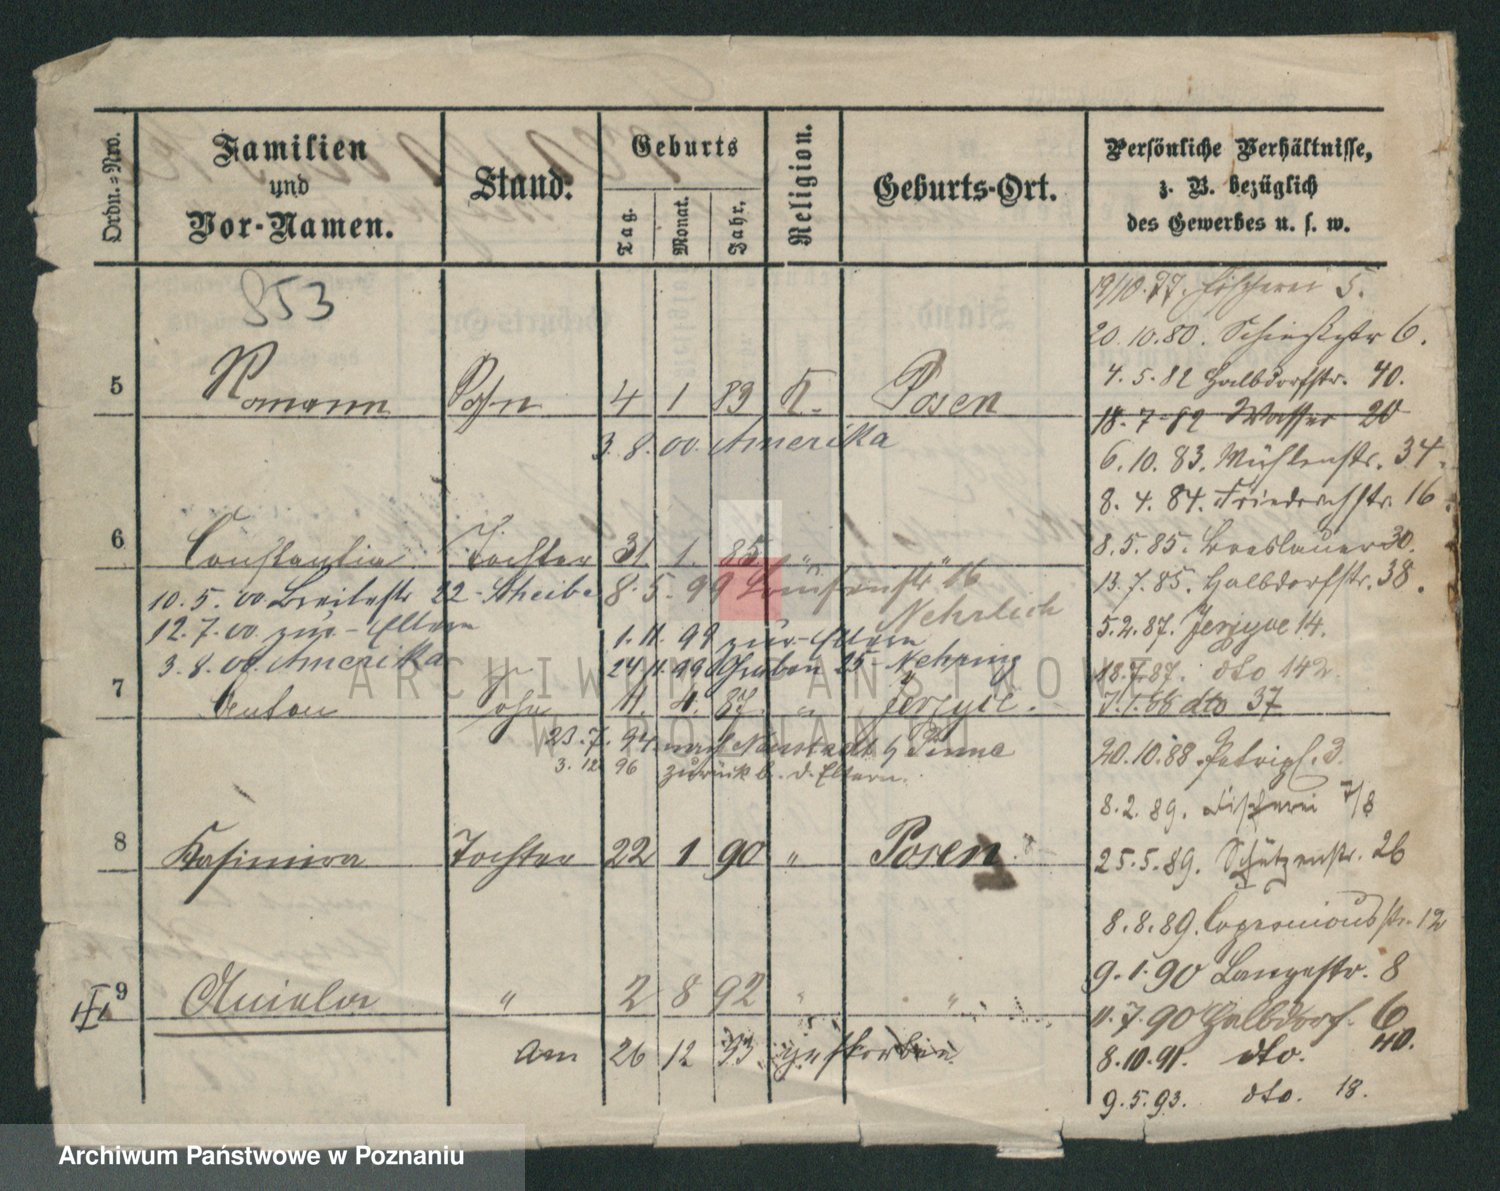 Ordn.=Nro.
Familien
und
Vor-Namen.
Stand.
Geburts
Tag.
Monat.
Jahr.
Religion.
Geburts-Ort.
Persönliche Verhältnisse,
z. B. bezüglich
des Gewerbes u. s. w.
853
5 Romann Sohn 4 1 83 K. Posen
3.8.00. Amerika
6 Constantia Tochter 31 1. 85 " "
10.5.00 Breitestr 22 - Scheibe 8.5.99 Louisenstr 16
Nehrlich
12.7.00 zur - Eltern
1.11.99 zur - Eltern
3.8.00. Amerika
24.11.99 Graben 25 Nehring
7 Anton Sohn 11. 1. 87. " Jerzyce.
23.7.94 nach Neustadt b Pinne
3.12 96 zurück b. d. Eltern.
8 Kasimira Tochter 22 1 90 " Posen
9 Aniela " 2 8 92 " "
am 26 12 93 gestorben
19/10.77. Fischerei 5.
20.10.80. Schiesstr 6.
4.5.82 Halbdorfstr. 40.
18.7.82 Wasser 20
6.10.83. Mühlenstr. 34.
8.4.84. Friedrichstr. 16.
8.5.85. Breslauer 30.
13.7.85. Halbdorfstr. 38.
5.2.87. Jerzyce 14.
18.7.87. dto 142
7.1.88 dto 37
20.10.88. Petripl. 3.
8.2.89. Fischerei 7/8
25.5.89. Schützenstr. 26
8.8.89. Copernicusstr. 12
9.1.90 Langestr. 8
11.7.90 Halbdorf. 6
8.10.91. dto. 40.
9.5.93. dto. 18.
ARCHIWUM PAŃSTWOWE
W POZNANIU
Archiwum Państwowe w Poznaniu